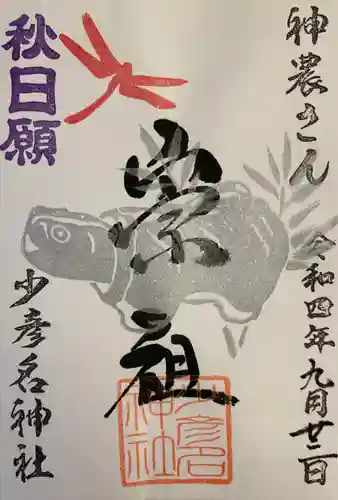 神農さん
令和四年九月廿二日
崇祖
秋日願
少彦名神社
少彦名
神社